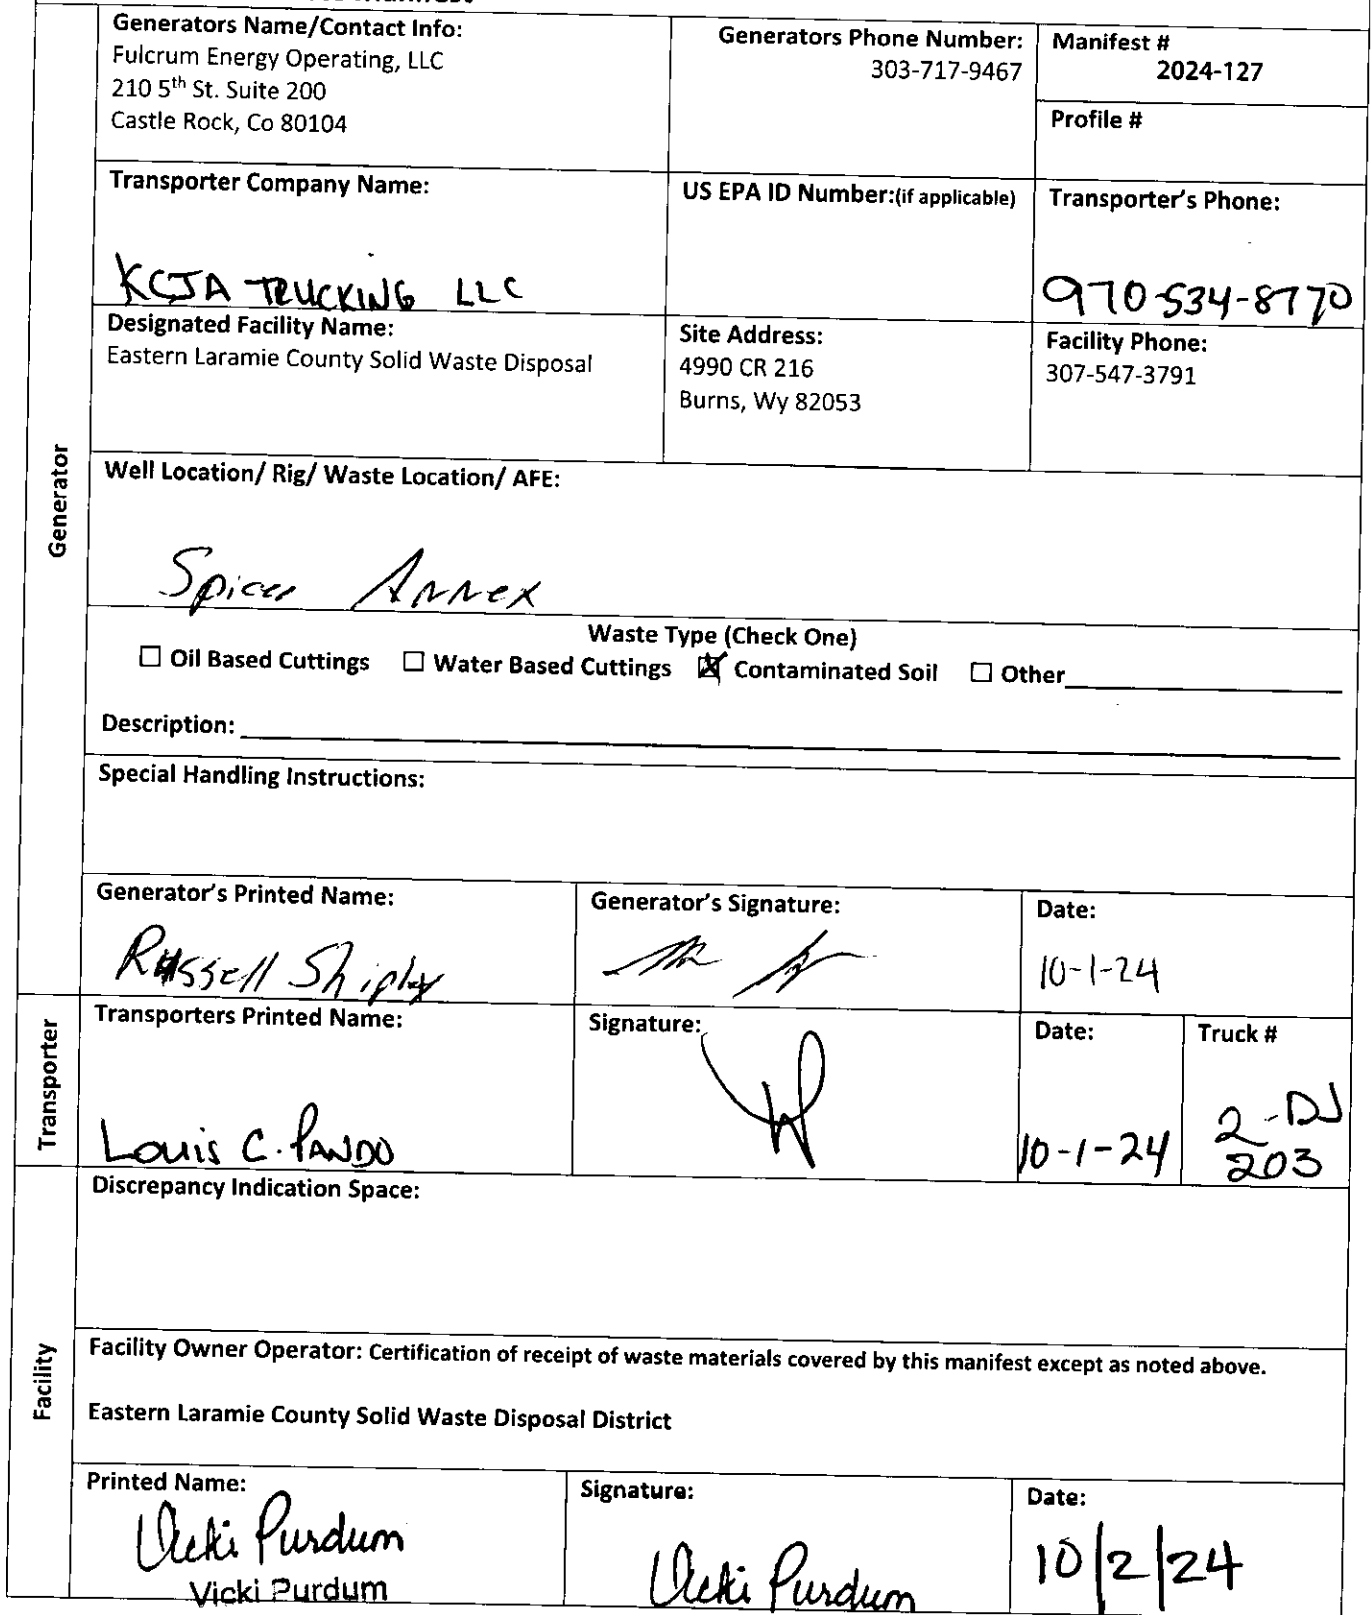 Generators Name/Contact Info:
Fulcrum Energy Operating, LLC
210 5th St. Suite 200
Castle Rock, Co 80104
Generators Phone Number:
303-717-9467
Manifest #
2024-127
Profile #
Transporter Company Name:
KCJA TRUCKING LLC
US EPA ID Number:(if applicable)
Transporter's Phone:
970-534-8770
Designated Facility Name:
Eastern Laramie County Solid Waste Disposal
Site Address:
4990 CR 216
Burns, Wy 82053
Facility Phone:
307-547-3791
Generator
Well Location/ Rig/ Waste Location/ AFE:
Spicer Annex
Waste Type (Check One)
☐ Oil Based Cuttings ☐ Water Based Cuttings ☒ Contaminated Soil ☐ Other
Description:
Special Handling Instructions:
Generator's Printed Name:
Russell Shipley
Generator's Signature:
Date:
10-1-24
Transporter
Transporters Printed Name:
Louis C. PANDO
Signature:
Date:
10-1-24
Truck #
2-DJ
203
Facility
Discrepancy Indication Space:
Facility Owner Operator: Certification of receipt of waste materials covered by this manifest except as noted above.
Eastern Laramie County Solid Waste Disposal District
Printed Name:
Vicki Purdum
Vicki Purdum
Signature:
Vicki Purdum
Date:
10/2/24